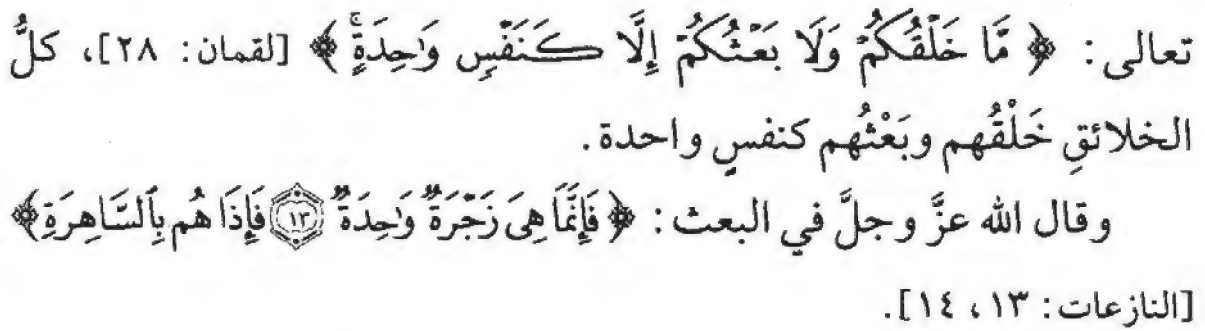 تعالى: ﴿ مَّا خَلْقُكُمْ وَلَا بَعْثُكُمْ إِلَّا كَنَفْسٍ وَٰحِدَةٍۚ ﴾ [لقمان: ٢٨]، كلُّ
الخلائقِ خَلْقُهم وبَعْثُهم كنفسٍ واحدة.
وقال الله عزَّ وجلَّ في البعث: ﴿ فَإِنَّمَا هِىَ زَجْرَةٌ وَٰحِدَةٌ ۝١٣ فَإِذَا هُم بِٱلسَّاهِرَةِ ﴾
[النازعات: ١٣، ١٤].